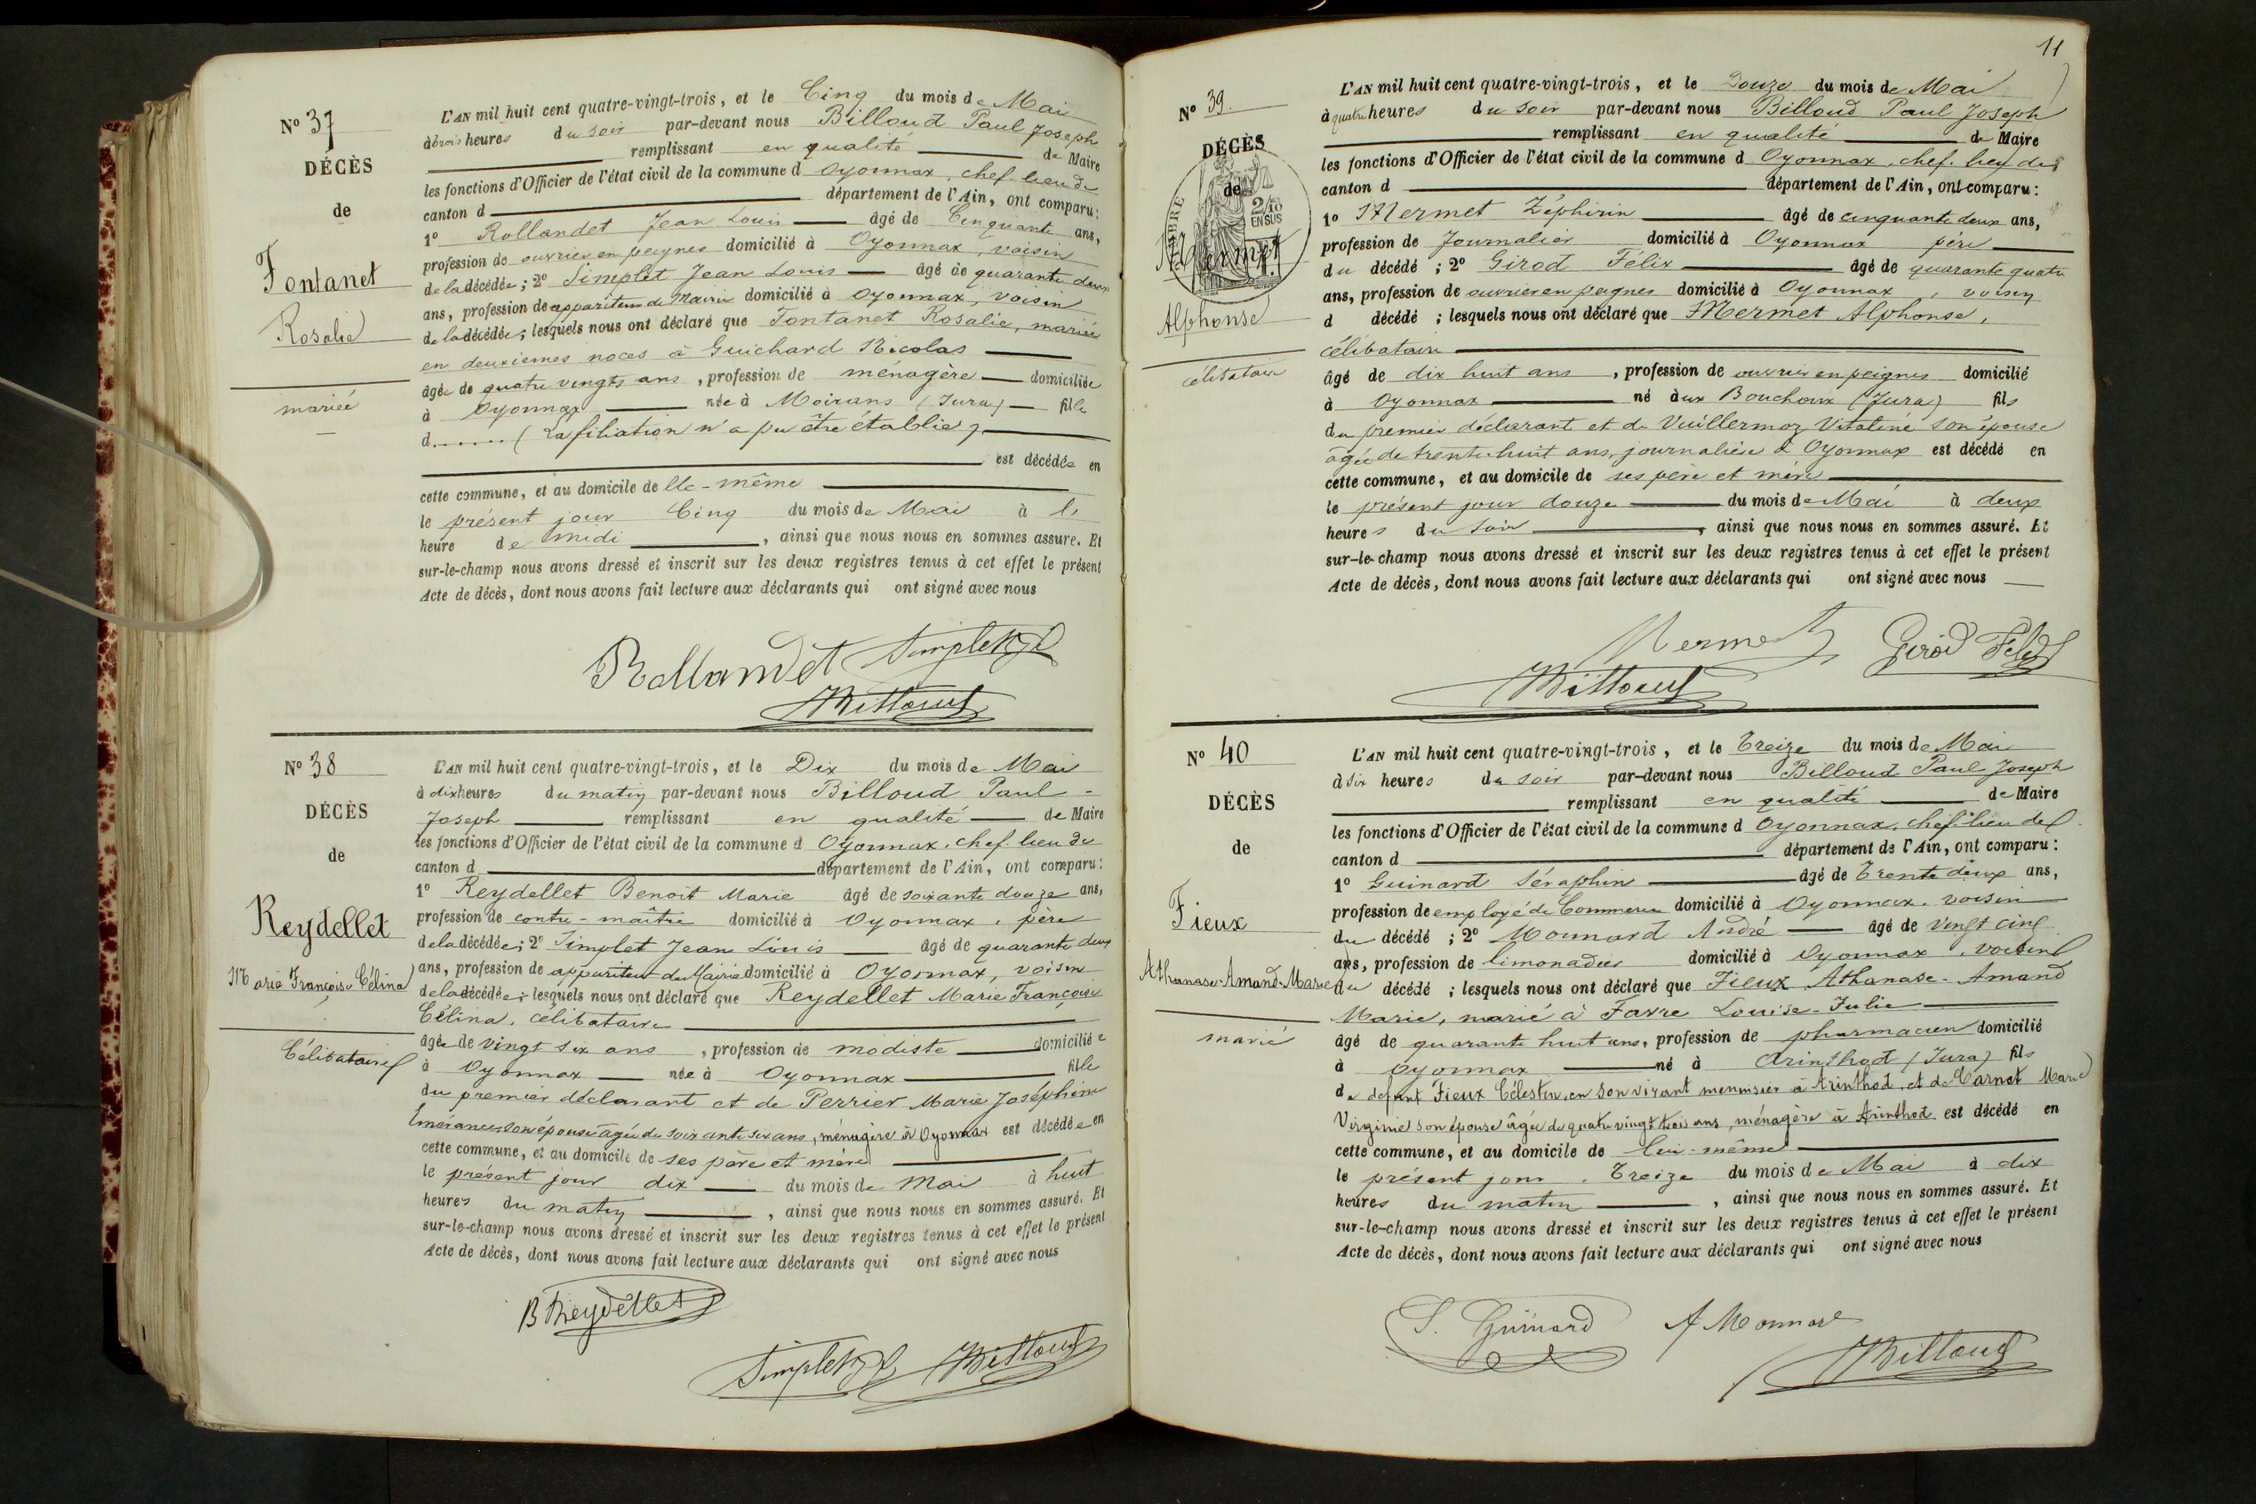 N° 37
DÉCÈS
de
Fontanet
Rosalie
mariée
L'AN mil huit cent quatre-vingt-trois, et le Cinq du mois de Mai
à trois heures du soir par-devant nous Billoud Paul Joseph
remplissant en qualité de Maire
les fonctions d'Officier de l'état civil de la commune d Oyonnax, chef-lieu de
canton d département de l'Ain, ont comparu:
1° Rollandet Jean Louis âgé de Cinquante ans,
profession de ouvrier en peignes domicilié à Oyonnax, voisin
de la décédée; 2° Simplet Jean Louis âgé de quarante deux
ans, profession de appariteur de Mairie domicilié à Oyonnax, voisin
de la décédée; lesquels nous ont déclaré que Fontanet Rosalie, mariée
en deuxièmes noces à Guichard Nicolas
âgée de quatre vingts ans, profession de ménagère domiciliée
à Oyonnax née à Moirans (Jura) fille
d...... (La filiation n'a pu être établie)
est décédée en
cette commune, et au domicile de elle-même
le présent jour Cinq du mois de Mai à
heure de midi, ainsi que nous nous en sommes assuré. Et
sur-le-champ nous avons dressé et inscrit sur les deux registres tenus à cet effet le présent
Acte de décès, dont nous avons fait lecture aux déclarants qui ont signé avec nous
Rollandet Simplet
Billoud
N° 38
DÉCÈS
de
Reydellet
Marie Françoise Célina
Célibataire
L'AN mil huit cent quatre-vingt-trois, et le Dix du mois de Mai
à dix heures du matin par-devant nous Billoud Paul-
Joseph remplissant en qualité de Maire
les fonctions d'Officier de l'état civil de la commune d Oyonnax, chef-lieu de
canton d département de l'Ain, ont comparu:
1° Reydellet Benoit Marie âgé de soixante douze ans,
profession de contre-maître domicilié à Oyonnax, père
de la décédée; 2° Simplet Jean Louis âgé de quarante deux
ans, profession de appariteur de Mairie domicilié à Oyonnax, voisin
de la décédée; lesquels nous ont déclaré que Reydellet Marie Françoise
Célina, célibataire
âgée de vingt six ans, profession de modiste domiciliée
à Oyonnax née à Oyonnax fille
du premier déclarant et de Perrier Marie Joséphine
Emérance son épouse âgée de soixante six ans, ménagère à Oyonnax est décédée en
cette commune, et au domicile de ses père et mère
le présent jour dix du mois de Mai à huit
heures du matin, ainsi que nous nous en sommes assuré. Et
sur-le-champ nous avons dressé et inscrit sur les deux registres tenus à cet effet le présent
Acte de décès, dont nous avons fait lecture aux déclarants qui ont signé avec nous
B Reydellet
Simplet Billoud
11
N° 39
DÉCÈS
de
TIMBRE
2/10
EN SUS
Mermet
Alphonse
célibataire
L'AN mil huit cent quatre-vingt-trois, et le Douze du mois de Mai
à quatre heures du soir par-devant nous Billoud Paul Joseph
remplissant en qualité de Maire
les fonctions d'Officier de l'état civil de la commune d Oyonnax, chef-lieu de
canton d département de l'Ain, ont comparu:
1° Mermet Zéphirin âgé de cinquante deux ans,
profession de Journalier domicilié à Oyonnax père
du décédé; 2° Girod Félix âgé de quarante quatre
ans, profession de ouvrier en peignes domicilié à Oyonnax, voisin
d décédé; lesquels nous ont déclaré que Mermet Alphonse,
célibataire
âgé de dix huit ans, profession de ouvrier en peignes domicilié
à Oyonnax né aux Bouchoux (Jura) fils
du premier déclarant et de Vuillermoz Vitaline son épouse
âgée de trente-huit ans, journalière à Oyonnax est décédé en
cette commune, et au domicile de ses père et mère
le présent jour douze du mois de Mai à deux
heures du soir, ainsi que nous nous en sommes assuré. Et
sur-le-champ nous avons dressé et inscrit sur les deux registres tenus à cet effet le présent
Acte de décès, dont nous avons fait lecture aux déclarants qui ont signé avec nous
Mermet Girod Félix
Billoud
N° 40
DÉCÈS
de
Fieux
Athanase-Amand-Marie
marié
L'AN mil huit cent quatre-vingt-trois, et le Treize du mois de Mai
à six heures du soir par-devant nous Billoud Paul Joseph
remplissant en qualité de Maire
les fonctions d'Officier de l'état civil de la commune d Oyonnax, chef-lieu de
canton d département de l'Ain, ont comparu:
1° Guinard Séraphin âgé de Trente deux ans,
profession de employé de Commerce domicilié à Oyonnax, voisin
du décédé; 2° Monnard André âgé de vingt cinq
ans, profession de limonadier domicilié à Oyonnax, voisin
du décédé; lesquels nous ont déclaré que Fieux Athanase-Amand
Marie, marié à Favre Louise-Julie
âgé de quarante huit ans, profession de pharmacien domicilié
à Oyonnax né à Arinthod (Jura) fils
de défunt Fieux Célestin, en son vivant menuisier à Arinthod, et de Carnet Marie
Virginie son épouse âgée de quatre vingt trois ans, ménagère à Arinthod est décédé en
cette commune, et au domicile de lui-même
le présent jour, Treize du mois de Mai à dix
heures du matin, ainsi que nous nous en sommes assuré. Et
sur-le-champ nous avons dressé et inscrit sur les deux registres tenus à cet effet le présent
Acte de décès, dont nous avons fait lecture aux déclarants qui ont signé avec nous
S. Guinard A Monnard
Billoud